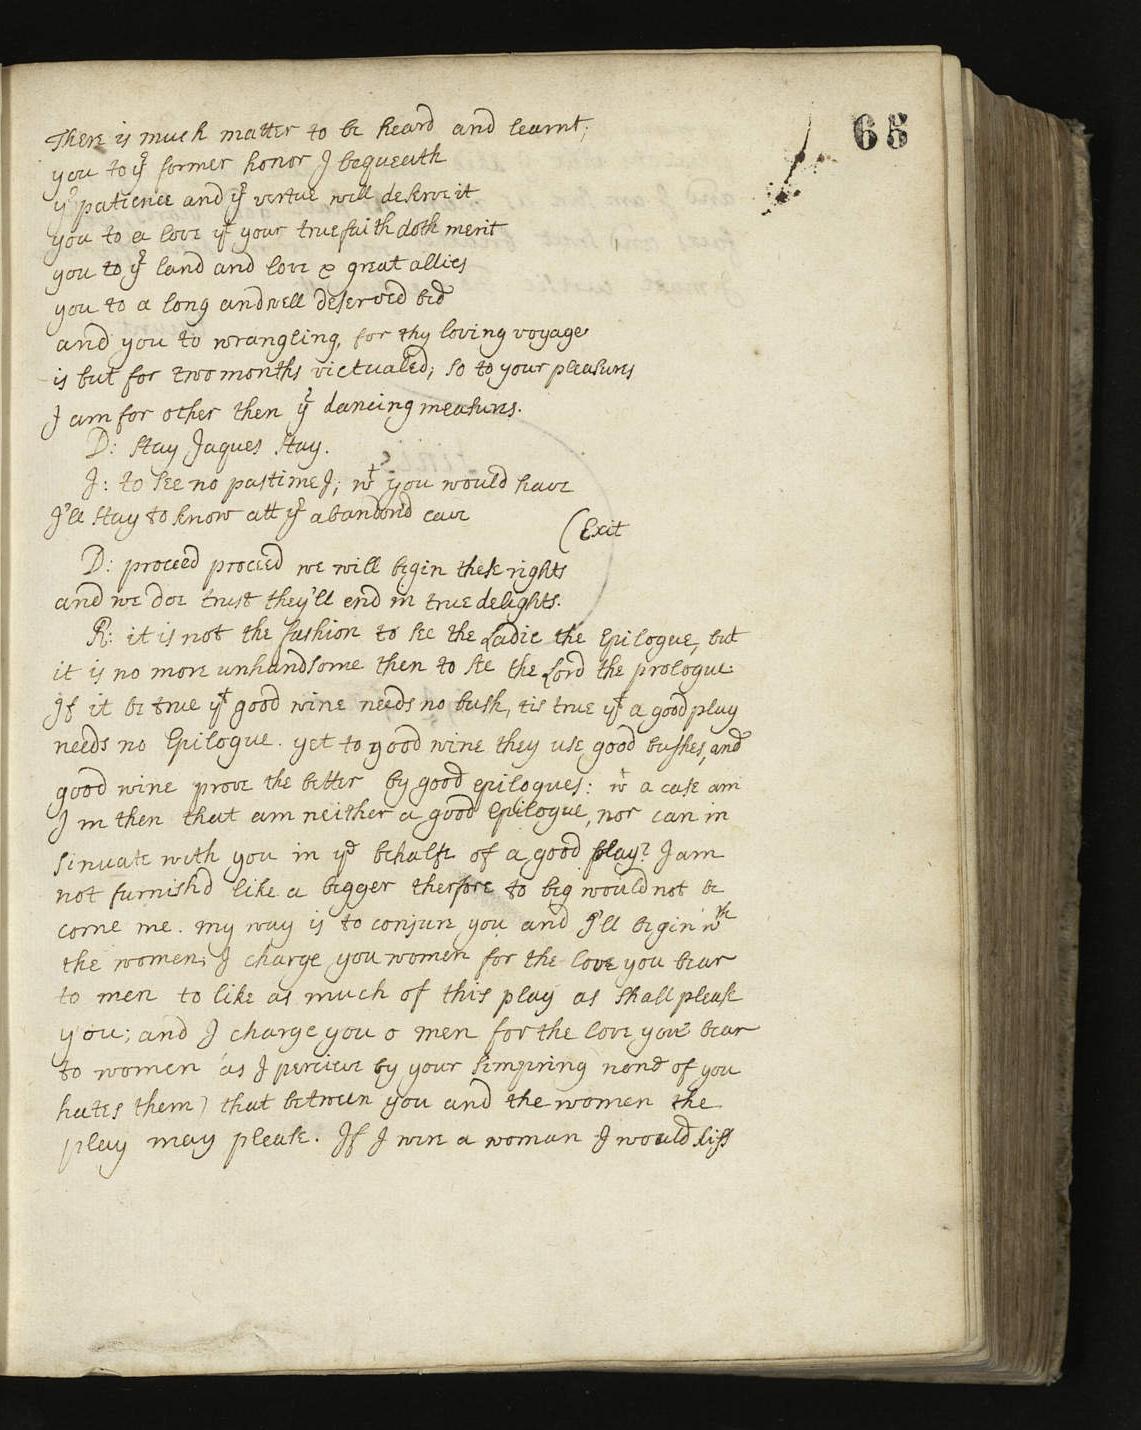 65
There is much matter to be heard and learnt;
you to yr former honor I bequeath
yr patience and yr vertue well deserve it
you to a love yt your true faith doth merit
you to yr land and love & great allies
you to a long and well deserved bed
and you to wrangling, for thy loving voyage
is but for two months victualed; so to your pleasures
I am for other then ye dancing measures.
D: stay Jaques stay.
J: to see no pastime I; wt you would have
I'll stay to know att yr abandon'd cave
(Exit
D: proceed proceed we will begin these rights
and we doe trust they'll end in true delights.
R: it is not the fashion to see the Ladie the Epilogue, but
it is no more unhandsome then to see the Lord the prologue.
If it be true yt good wine needs no bush, tis true yt a good play
needs no Epilogue. yet to good wine they use good bushes, and
good wine prove the better by good epilogues: wt a case am
I in then that am neither a good Epilogue, nor can in
sinuate with you in ye behalfe of a good play? I am
not furnish'd like a begger therfore to beg would not be
come me. my way is to conjure you and I'll begin wth
the women; I charge you women for the love you bear
to men to like as much of this play as shall please
you; and I charge you o men for the love you bear
to women (as I percieve by your simpring none of you
hates them) that between you and the women the
play may please. If I were a woman I would kiss